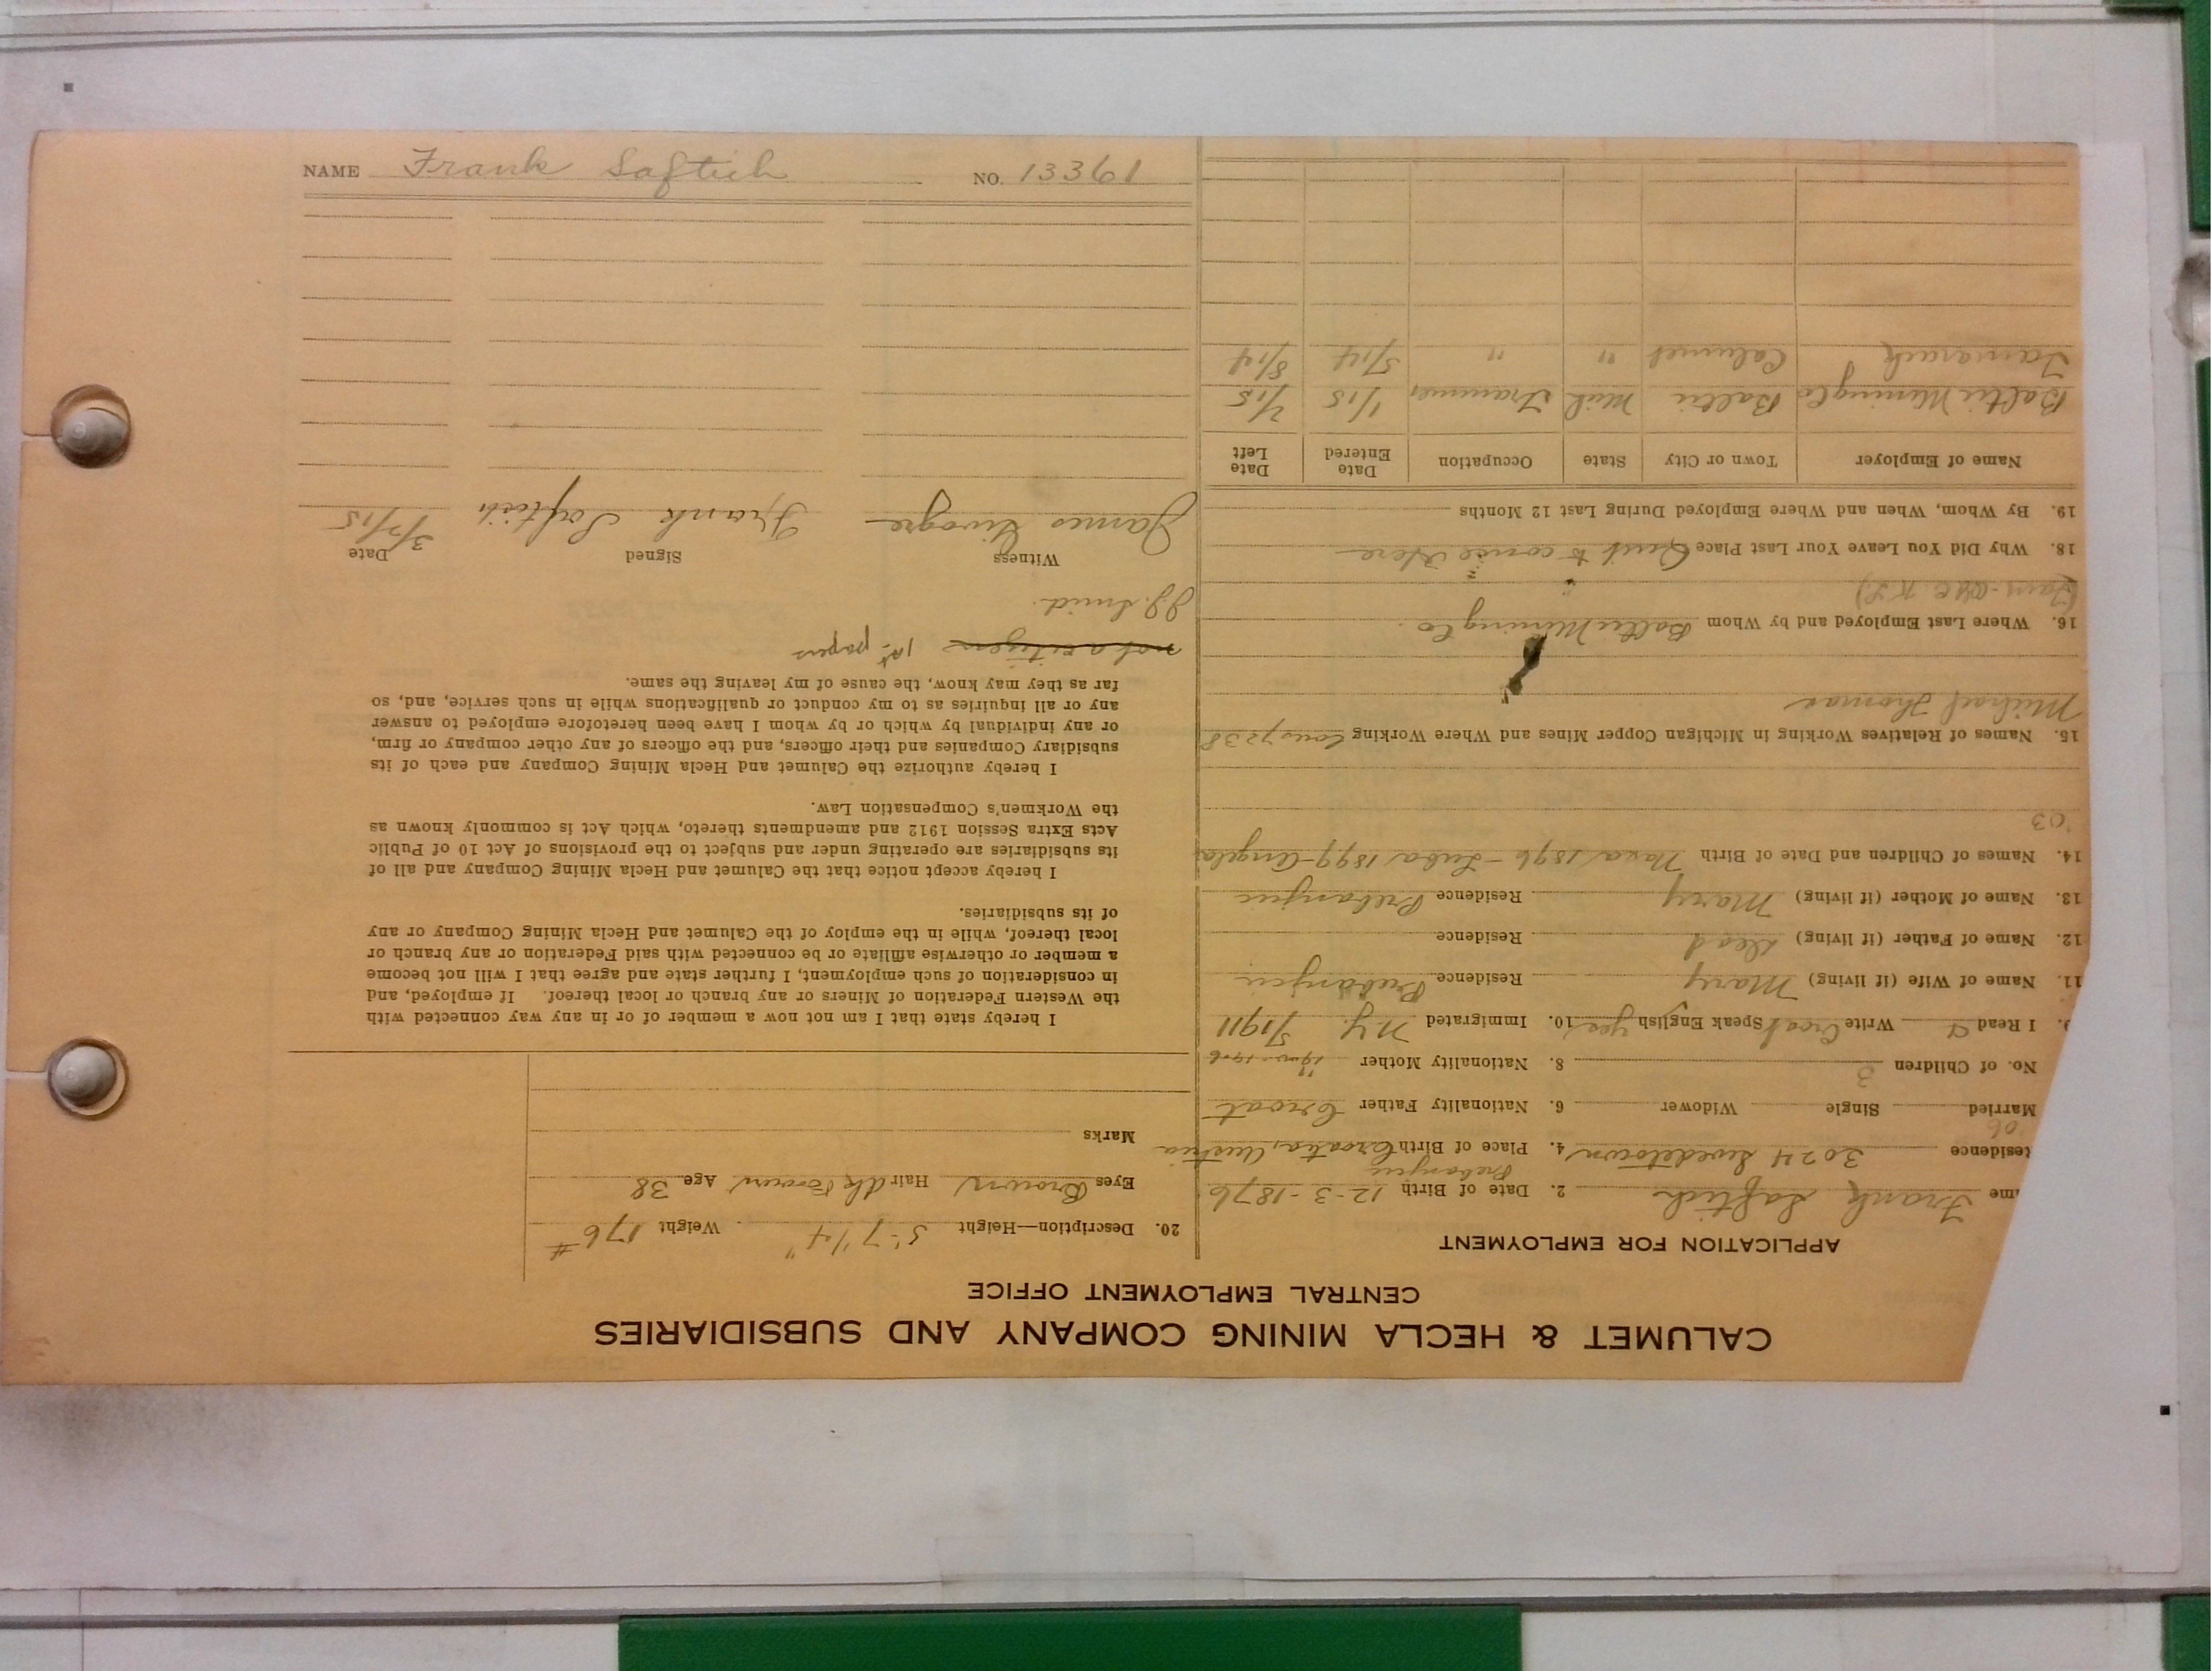 CALUMET & HECLA MINING COMPANY AND SUBSIDIARIES
CENTRAL EMPLOYMENT OFFICE
APPLICATION FOR EMPLOYMENT
me Frank Saftich 2. Date of Birth 12-3-1876
Residence 3024 Swedetown 4. Place of Birth Croatia, Austria
'06
Married Single Widower 6. Nationality Father Croat
No. of Children 3 8. Nationality Mother "
9. I Read & Write Croat Speak English yes 10. Immigrated N.Y. 5/1911
11. Name of Wife (if living) Mary Residence
12. Name of Father (if living) Dead Residence
13. Name of Mother (if living) Mary Residence
14. Names of Children and Date of Birth 1896 - Luba 1899 - Angela
'03
15. Names of Relatives Working in Michigan Copper Mines and Where Working
Michael Thomas
16. Where Last Employed and by Whom Baltic Mining Co.
18. Why Did You Leave Your Last Place Quit to come Here
19. By Whom, When and Where Employed During Last 12 Months
Name of Employer Town or City State Occupation Date Entered Date Left
Baltic Mining Co Baltic Mich Trammer 1/15 2/15
Tamarack Calumet " " 5/14 8/14
20. Description—Height 5'-7 1/4" Weight 176 #
Eyes Brown Hair dk Brown Age 38
Marks
I hereby state that I am not now a member of or in any way connected with
the Western Federation of Miners or any branch or local thereof. If employed, and
in consideration of such employment, I further state and agree that I will not become
a member or otherwise affiliate or be connected with said Federation or any branch or
local thereof, while in the employ of the Calumet and Hecla Mining Company or any
of its subsidiaries.
I hereby accept notice that the Calumet and Hecla Mining Company and all of
its subsidiaries are operating under and subject to the provisions of Act 10 of Public
Acts Extra Session 1912 and amendments thereto, which Act is commonly known as
the Workmen's Compensation Law.
I hereby authorize the Calumet and Hecla Mining Company and each of its
subsidiary Companies and their officers, and the officers of any other company or firm,
or any individual by which or by whom I have been heretofore employed to answer
any or all inquiries as to my conduct or qualifications while in such service, and, so
far as they may know, the cause of my leaving the same.
not a citizen 1st papers
Witness Signed Date
James Frank Saftich 3/2/15
NAME Frank Saftich NO. 13361